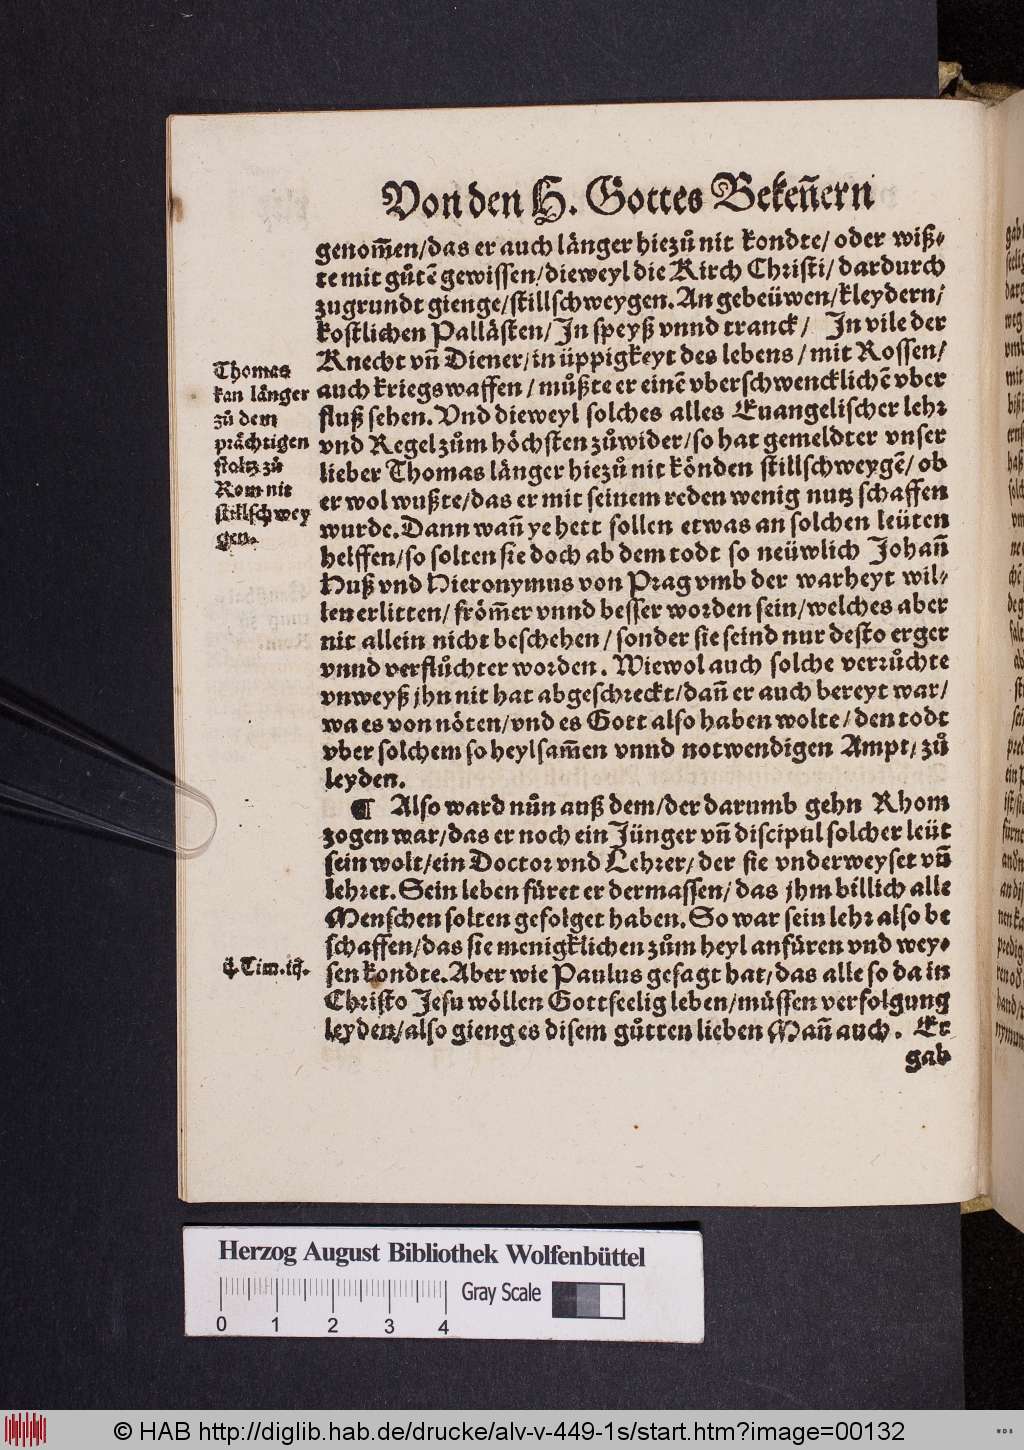 Von den H. Gottes Bekeñern
genom̃en/das er auch långer hiezů nit kondte/ oder wiß⸗
te mit gůtẽ gewissen/dieweyl die Kirch Christi/ dardurch
zugrundt gienge/stillschweygen. An gebeüwen/kleydern/
kostlichen Pallåsten/ Jn speyß vnnd tranck/ Jn vile der
Knecht vñ Diener/in üppigkeyt des lebens/ mit Rossen/
auch kriegswaffen/ můßte er einẽ vberschwencklichẽ vber
fluß sehen. Vnd dieweyl solches alles Euangelischer lehr
vnd Regel zům höchsten zůwider/so hat gemeldter vnser
lieber Thomas långer hiezů nit könden stillschweygẽ/ ob
er wol wußte/das er mit seinem reden wenig nutz schaffen
wurde. Dann wañ ye hett sollen etwas an solchen leüten
helffen/so solten sie doch ab dem todt so neüwlich Johañ
Huß vnd Hieronymus von Prag vmb der warheyt wil⸗
len erlitten/ frõm̃er vnnd besser worden sein/welches aber
nit allein nicht beschehen/ sonder sie seind nur desto erger
vnnd verflůchter worden. Wiewol auch solche verrůchte
vnweyß jhn nit hat abgeschreckt/dañ er auch bereyt war/
wa es von nöten/vnd es Gott also haben wolte/ den todt
vber solchem so heylsam̃en vnnd notwendigen Ampt/ zů
leyden.
¶ Also ward nůn auß dem/der darumb gehn Rhom
zogen war/das er noch ein Jünger vñ discipul solcher leüt
sein wolt/ein Doctor vnd Lehrer/ der sie vnderweyset vñ
lehret. Sein leben füret er dermassen/ das jhm billich alle
Menschen solten gefolget haben. So war sein lehr also be
schaffen/das sie menigklichen zům heyl anfüren vnd wey⸗
sen kondte. Aber wie Paulus gesagt hat/das alle so da in
Christo Jesu wöllen Gottseelig leben/müssen verfolgung
leyden/also gieng es disem gůtten lieben Mañ auch. Er
gab
Thomas
kan långer
zů dem
pråchtigen
stoltz zů
Rom nit
stillschwey
gen.
Tim. iij.
Herzog August Bibliothek Wolfenbüttel
Gray Scale
0 1 2 3 4
© HAB http://diglib.hab.de/drucke/alv-v-449-1s/start.htm?image=00132